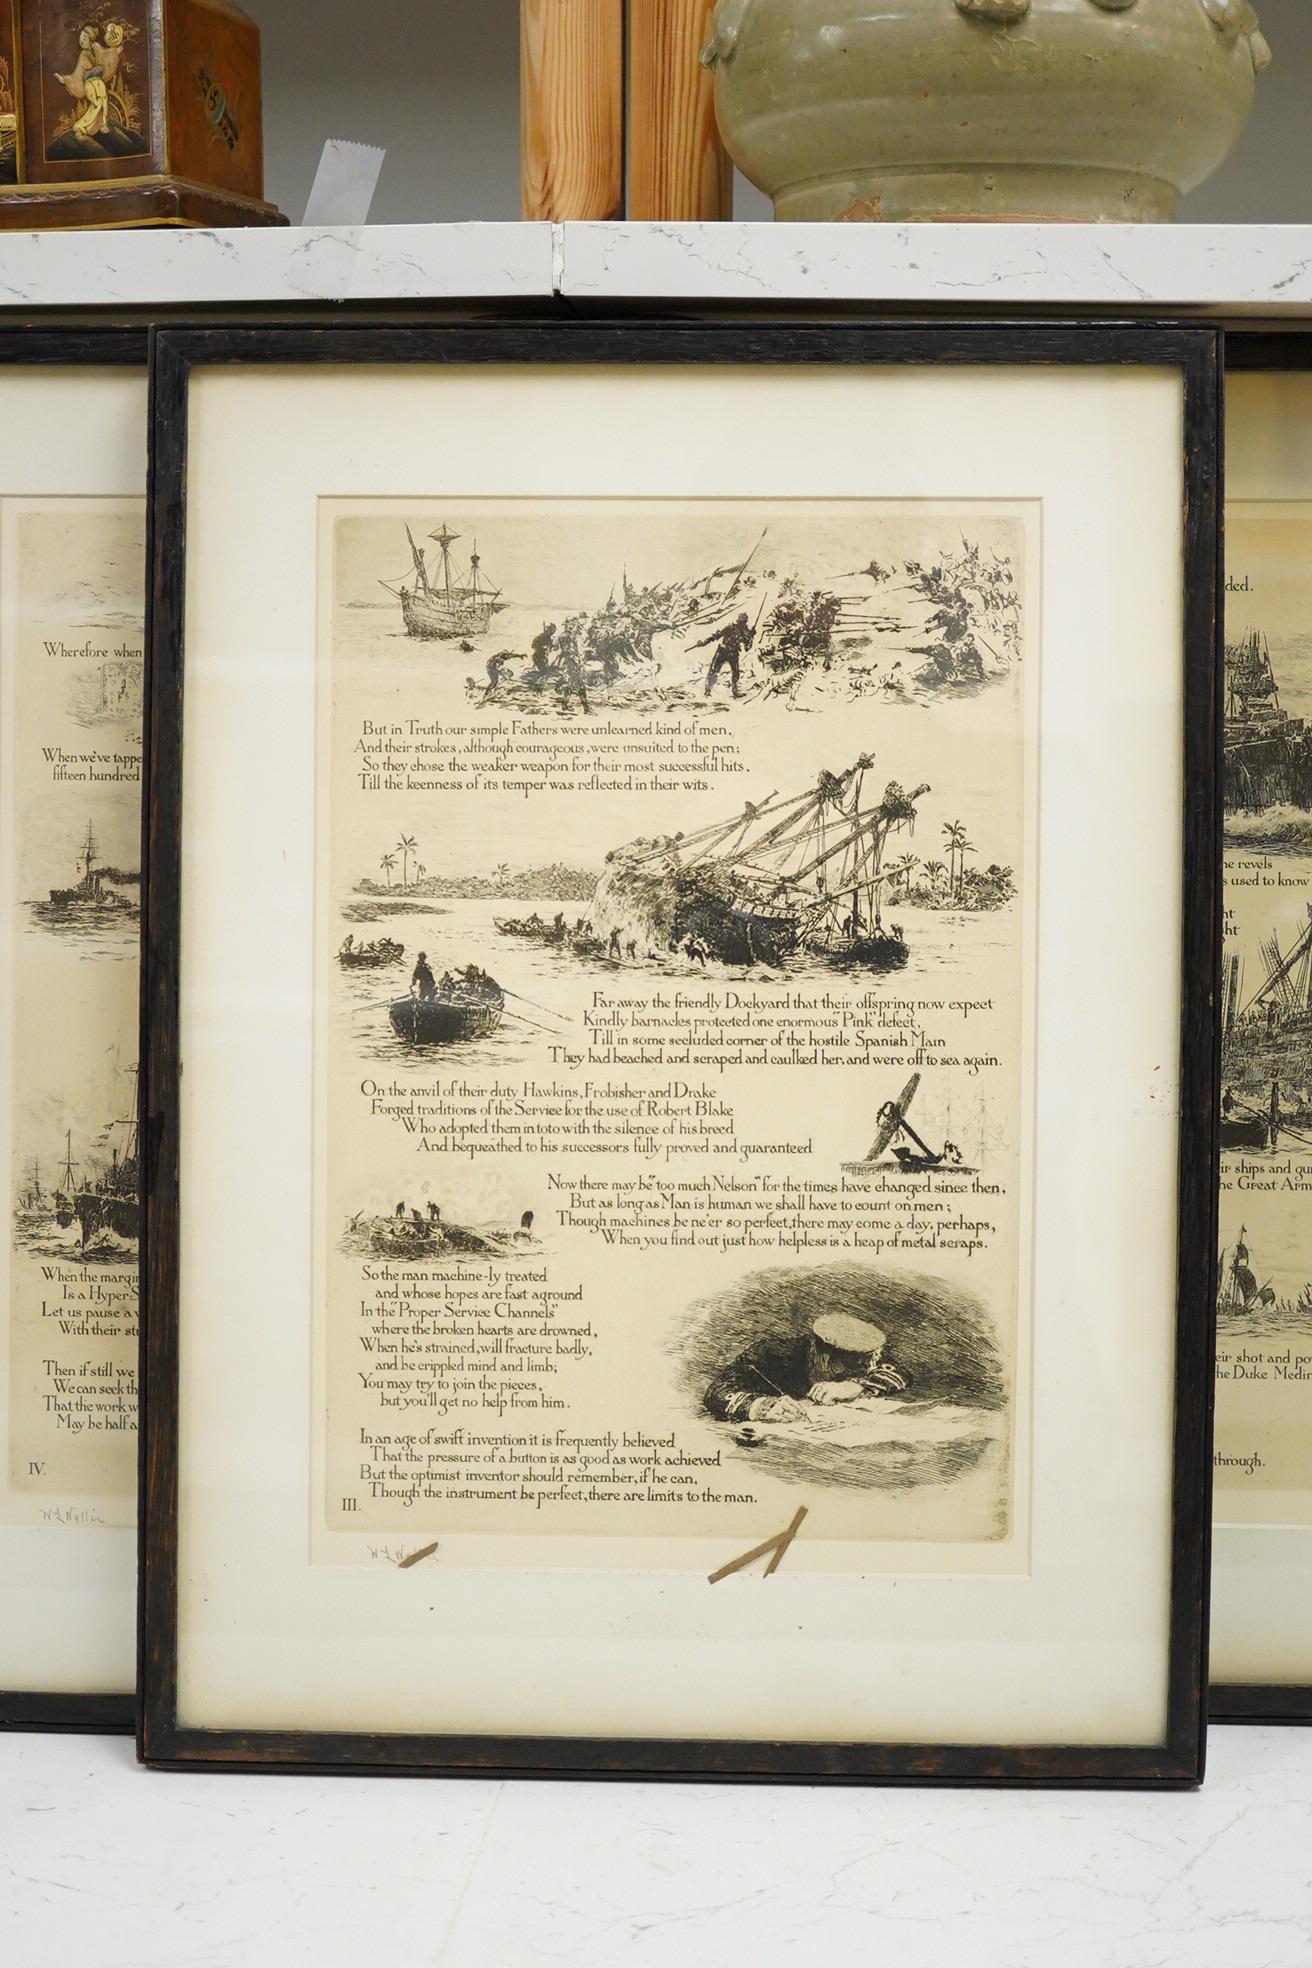 But in Truth our simple Fathers were unlearned kind of men,
And their strokes, although courageous, were unsuited to the pen;
So they chose the weaker weapon for their most successful hits,
Till the keenness of its temper was reflected in their wits.
Far away the friendly Dockyard that their offspring now expect
Kindly barnacles protected one enormous "Pink" defect,
Till in some secluded corner of the hostile Spanish Main
They had beached and scraped and caulked her, and were off to sea again.
On the anvil of their duty Hawkins, Frobisher and Drake
Forged traditions of the Service for the use of Robert Blake
Who adopted them in toto with the silence of his breed
And bequeathed to his successors fully proved and guaranteed
Now there may be "too much Nelson" for the times have changed since then,
But as long as Man is human we shall have to count on men;
Though machines be ne'er so perfect, there may come a day, perhaps,
When you find out just how helpless is a heap of metal scraps.
So the man machine-ly treated
and whose hopes are fast aground
In the "Proper Service Channels"
where the broken hearts are drowned,
When he's strained, will fracture badly,
and be crippled mind and limb;
You may try to join the pieces,
but you'll get no help from him.
In an age of swift invention it is frequently believed
That the pressure of a button is as good as work achieved
But the optimist inventor should remember, if he can,
Though the instrument be perfect, there are limits to the man.
III.
W L W
Wherefore when
When we've tappe
fifteen hundred
When the margi
Is a Hyper-S
Let us pause a w
With their str
Then if still we
We can seek th
That the work w
May be half a
IV.
W L Wyllie
ded.
he revels
s used to know
ht
ght
ir ships and gu
he Great Arm
eir shot and po
he Duke Medin
through.